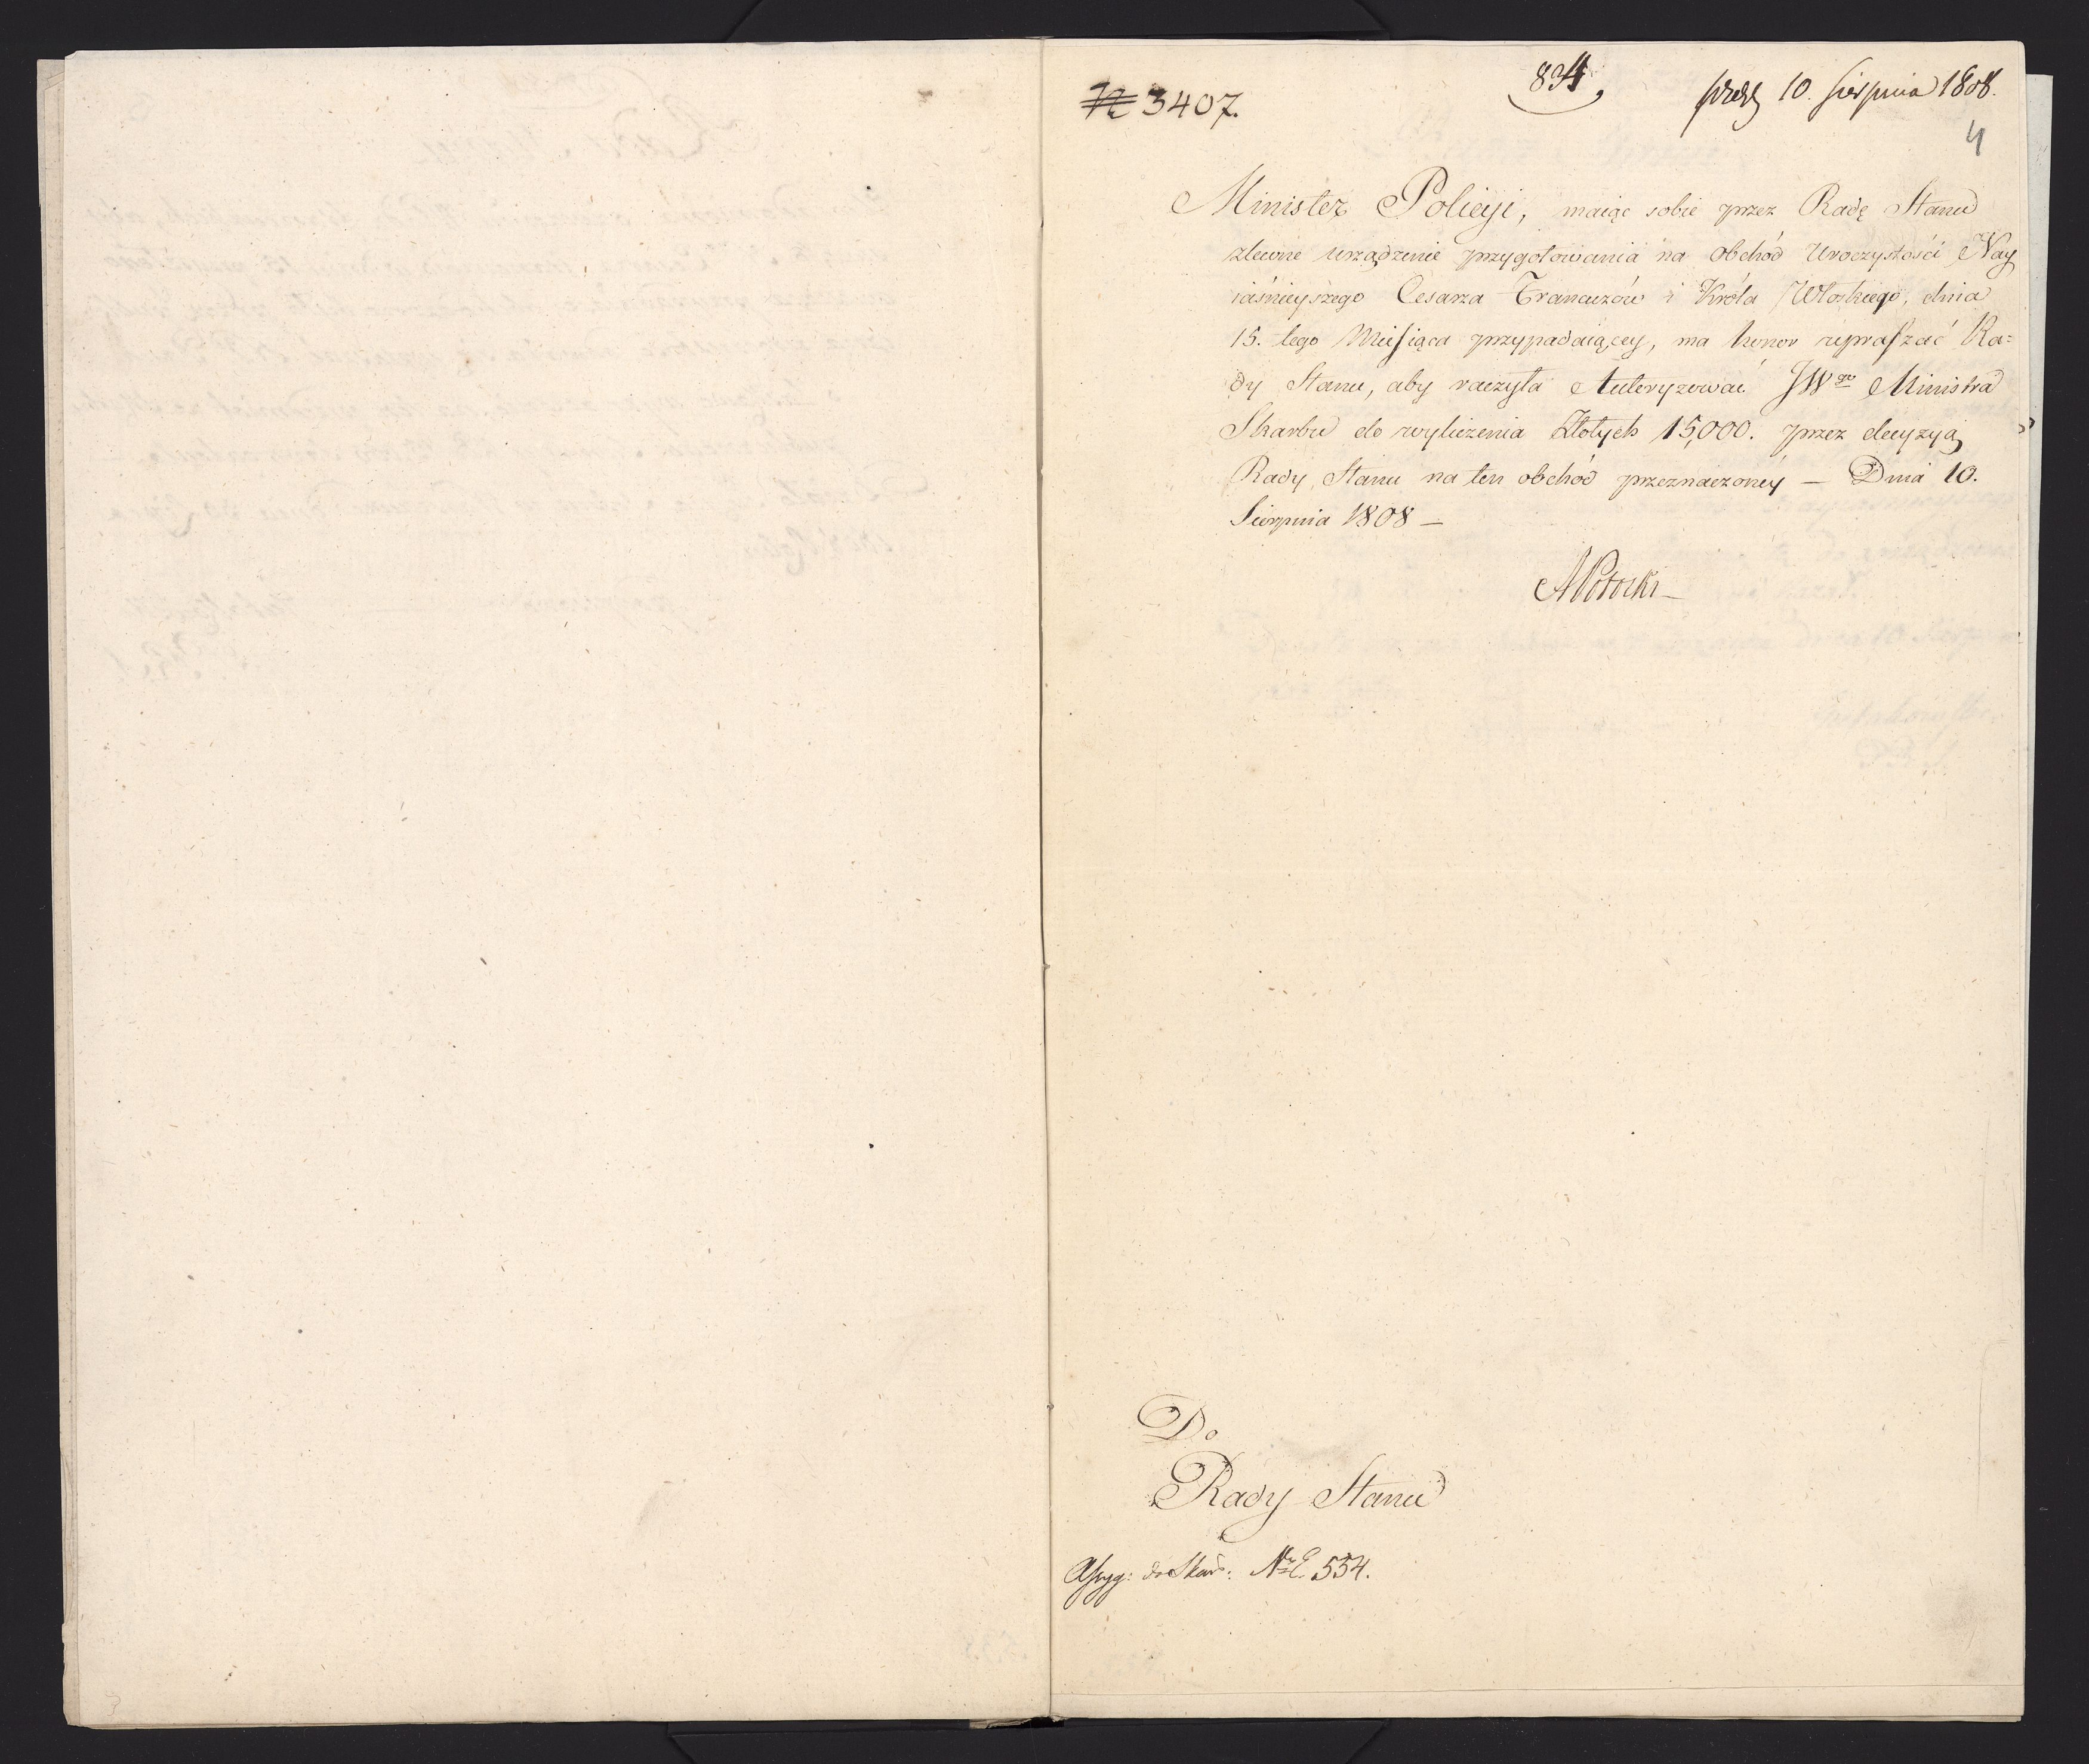 N 3407.
834,
10. Sierpnia 1808.
4
Minister Policyi, maiąc sobie przez Radę Stanu
zlecone urządzenie przygotowania na obchód Uroczystości Nay
iaśnieyszego Cesarza Francuzów i Króla Włoskiego, dnia
15. tego Miesiąca przypadaiącey, ma honor upraszać Ra=
dy Stanu, aby raczyła Autoryzować JWgo Ministra
Skarbu do wyliczenia Złotych 15,000. przez decyzyą
Rady Stanu na ten obchód przeznaczoney — Dnia 10.
Sierpnia 1808 —
APotocki
Do
Rady Stanu
Assyg: do Skar: Nr 554.